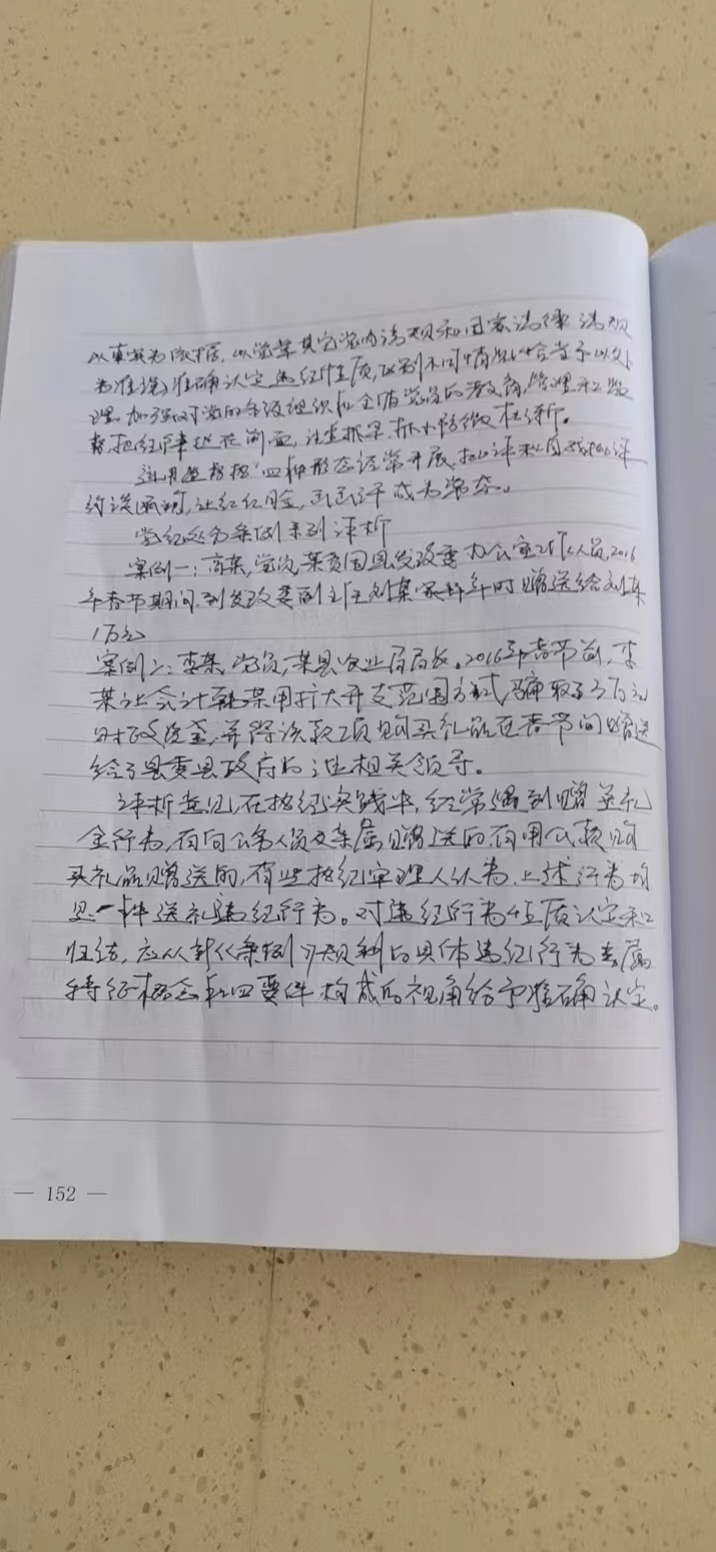 以事实为依据，以党章其它党内法规和国家法律法规
为准绳，准确认定违纪性质，区别不同情况，恰当予以处
理。加强对党的各级组织和全体党员的教育、管理和监
督，把纪律挺在前面，注重抓早、抓小、防微杜渐。
运用监督执"四种形态经常开展、批评和自我批评
约谈函询，让红红脸，出出汗成为常态。
党纪处分条例系列评析
案例一：高某，党员，某贫困县发改委办公室工作人员，2016
年春节期间，到发改委副主任刘某家拜年时赠送给刘某
1万元
案例二：李某，党员，某县农业局局长。2016年春节前，李
某让会计韩某用扩大开支范围方式，骗取了3万元
财政资金，并将该款项购买礼品在春节间赠送
给了县委县政府的相关领导。
评析意见，在执纪实践中，经常遇到赠送礼
金行为，有向公务人员及亲属赠送的，有用公款购
买礼品赠送的，有些执纪审理人认为，上述行为均
是一种送礼违纪行为。对违纪行为性质认定和
归结，应从条例分则规与具体违纪行为类属
特征概念和四要件构成的视角给予准确认定。
— 152 —